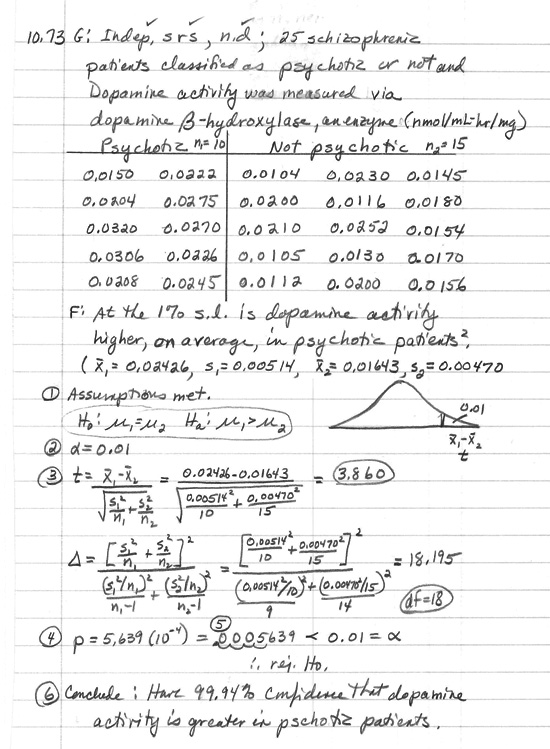 10.73 G: Indep, srs, n.d; 25 schizophrenic
patients classified as psychotic or not and
Dopamine activity was measured via
dopamine β-hydroxylase, an enzyme (nmol/mL-hr/mg)
Psychotic n₁=10 Not psychotic n₂=15
0.0150 0.0222 0.0104 0.0230 0.0145
0.0204 0.0275 0.0200 0.0116 0.0180
0.0320 0.0270 0.0210 0.0252 0.0154
0.0306 0.0226 0.0105 0.0130 0.0170
0.0208 0.0245 0.0112 0.0200 0.0156
F: At the 1% s.l. is dopamine activity
higher, on average, in psychotic patients?
(x̄₁ = 0.02426, s₁ = 0.00514, x̄₂ = 0.01643, s₂ = 0.00470
① Assumptions met.
H₀: μ₁=μ₂ Ha: μ₁>μ₂
0.01
x̄₁-x̄₂
t
② α=0.01
③ t = x̄₁-x̄₂ / √(s₁²/n₁ + s₂²/n₂) = 0.02426-0.01643 / √(0.00514²/10 + 0.00470²/15) = 3.860
Δ = [s₁²/n₁ + s₂²/n₂]² / ((s₁²/n₁)²/n₁-1 + (s₂²/n₂)²/n₂-1) = [0.00514²/10 + 0.00470²/15]² / ((0.00514²/10)²/9 + (0.00470²/15)²/14) = 18.195
df=18
④ p = 5.639(10⁻⁴) = ⑤ .0005639 < 0.01 = α
∴ rej. H₀.
⑥ Conclude: Have 99.94% confidence that dopamine
activity is greater in pschotic patients.